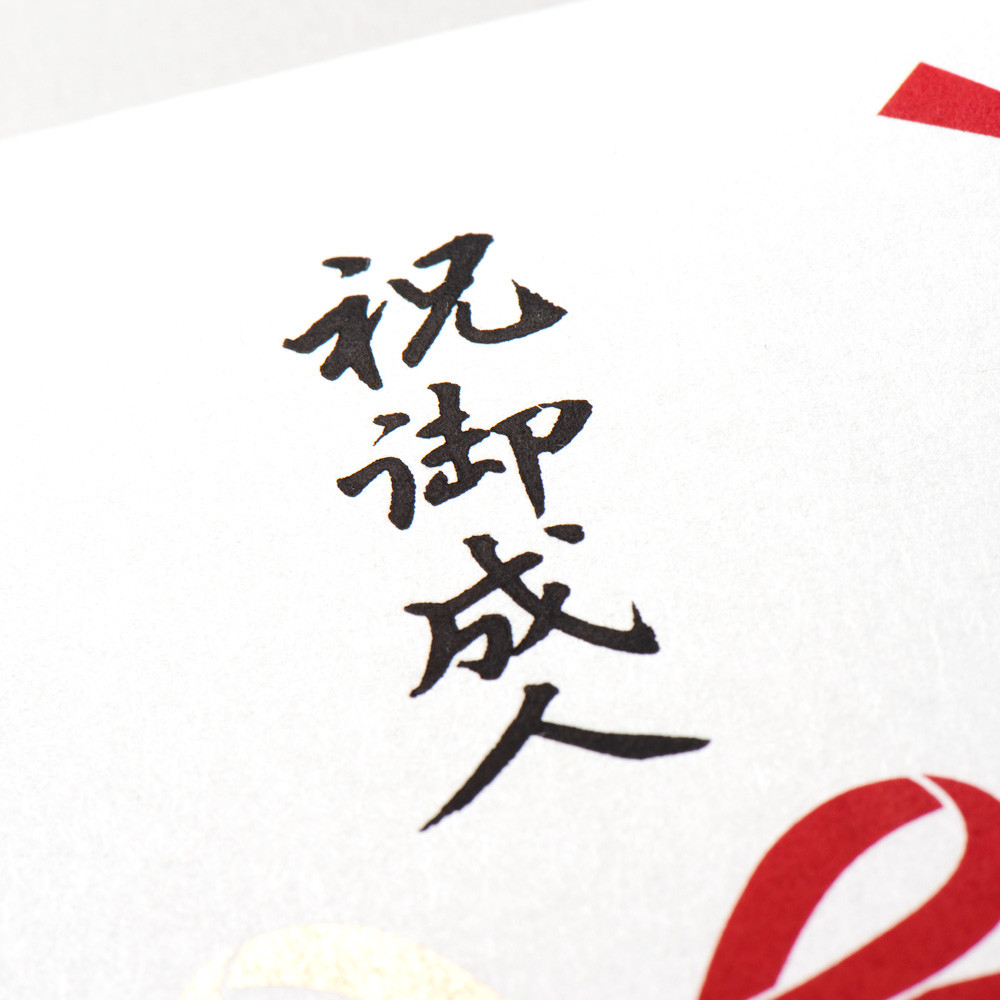 祝御成人